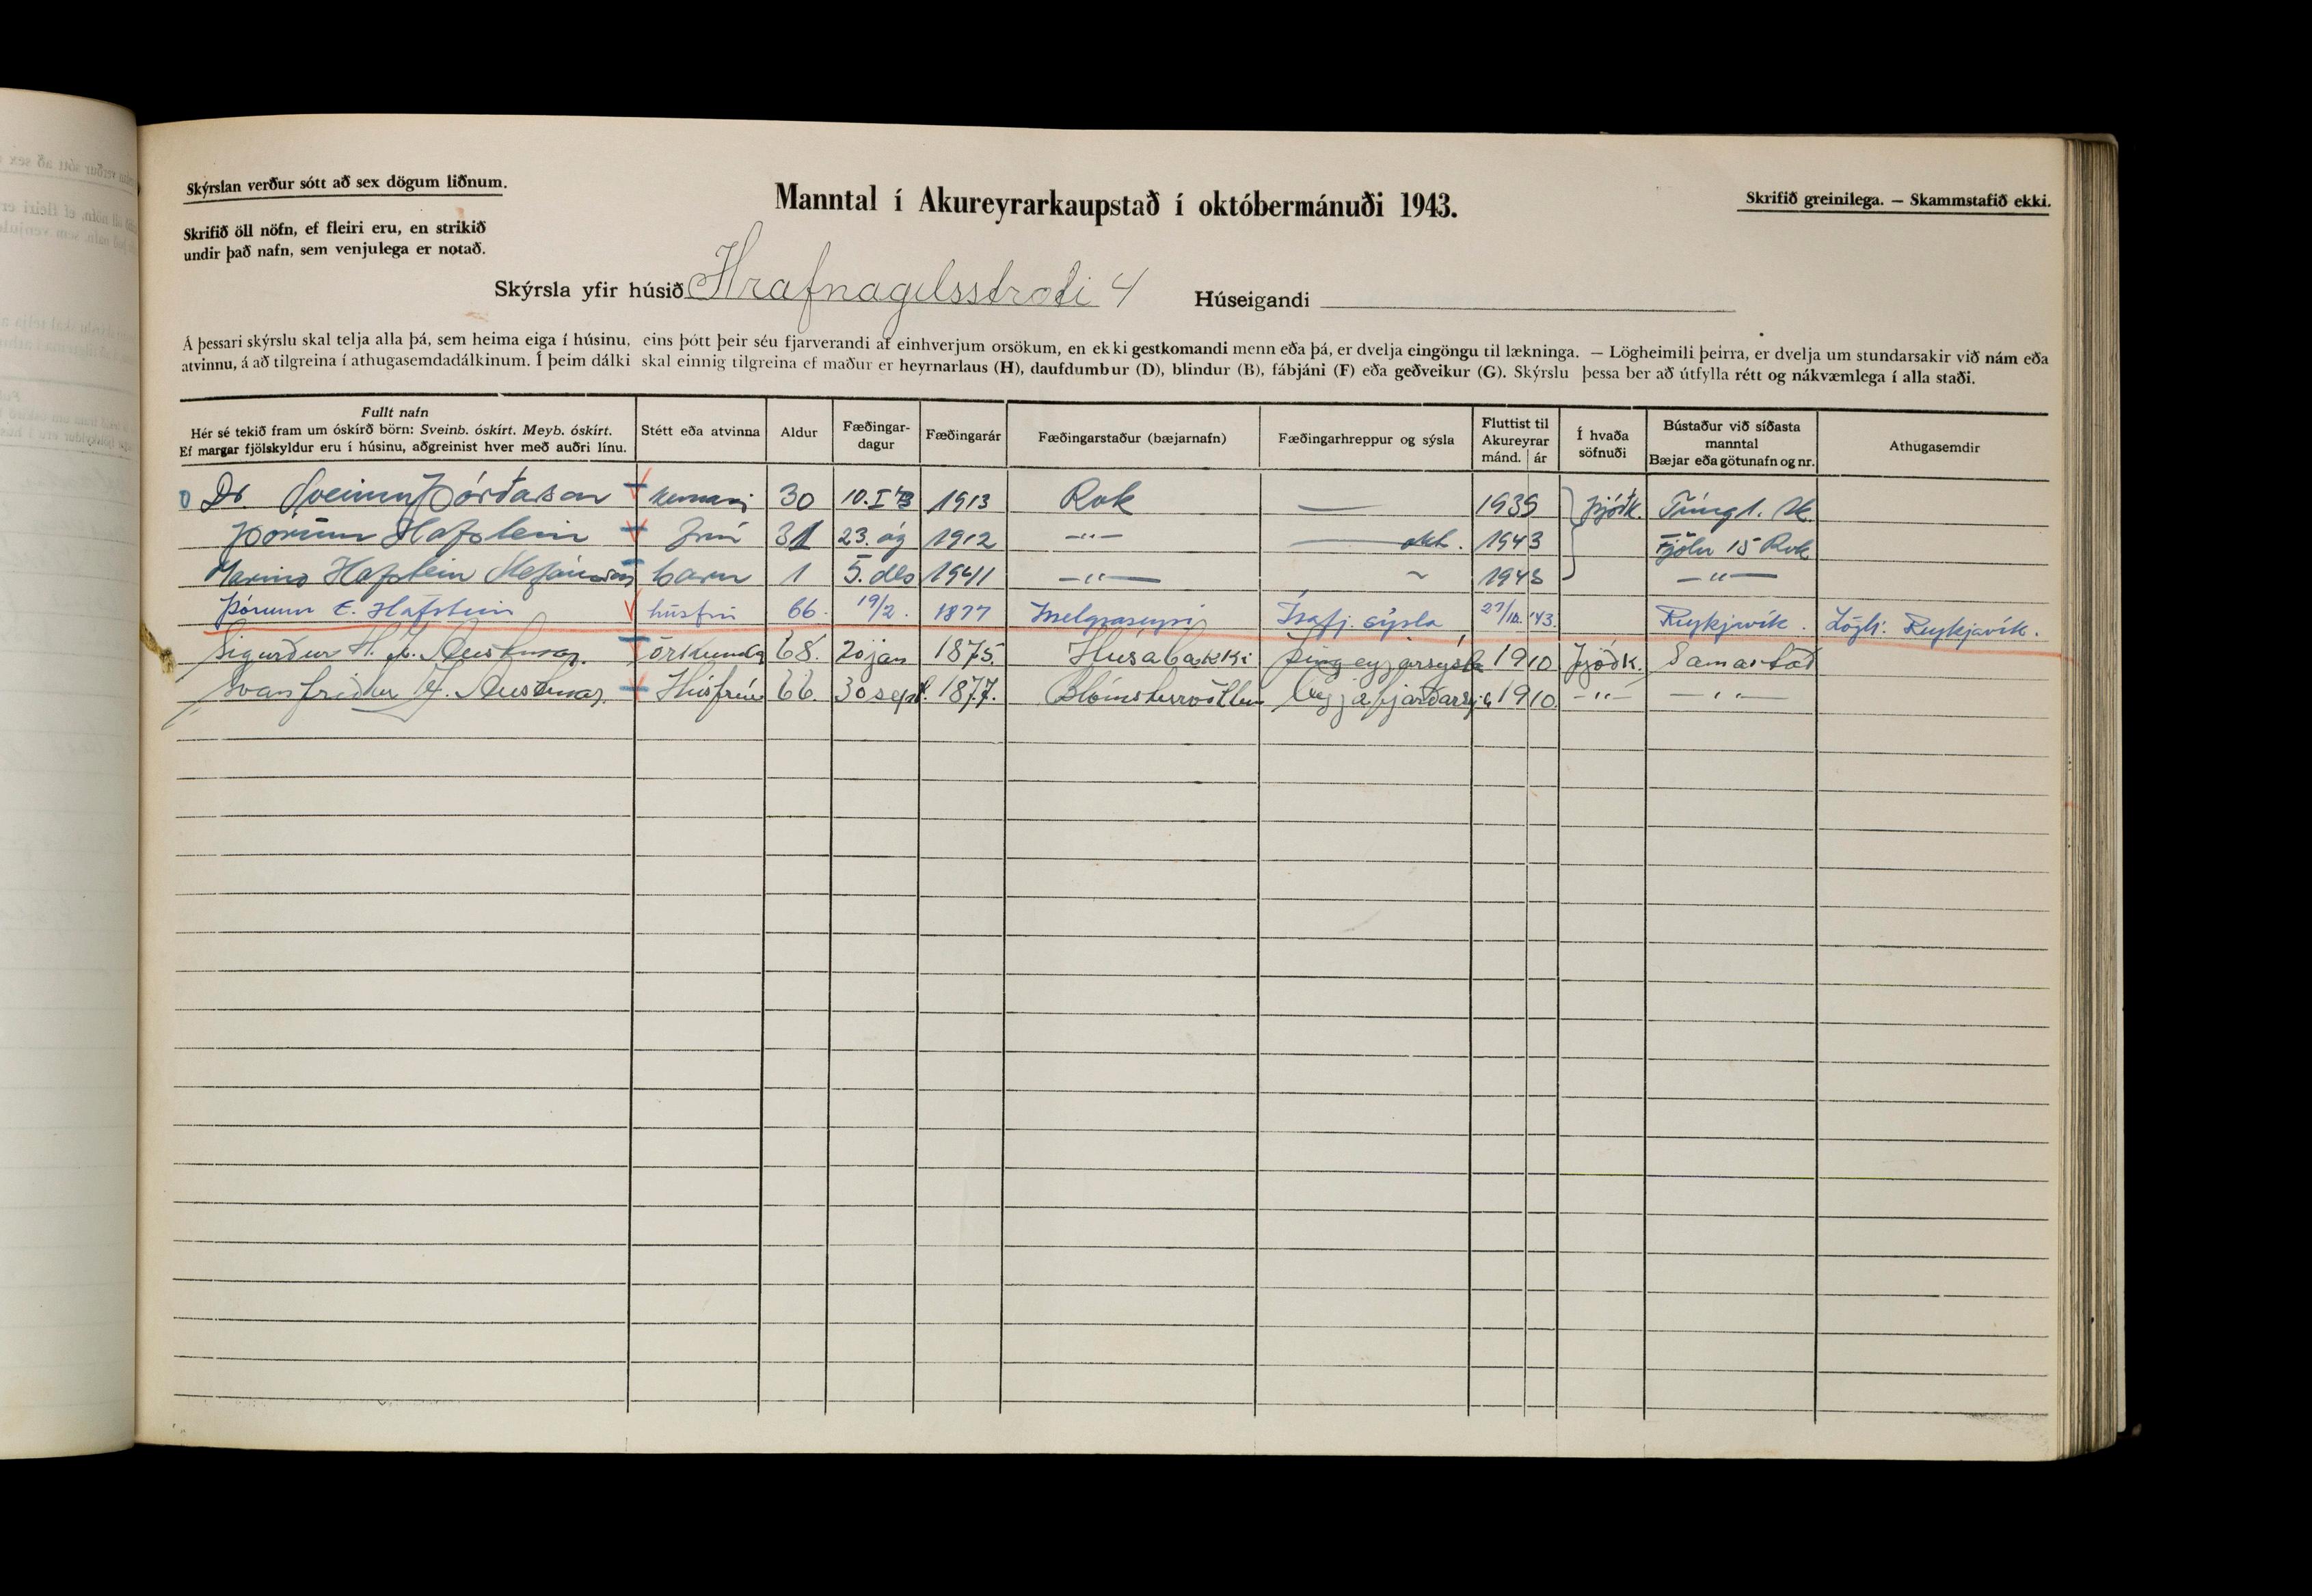 Skýrslan verður sótt að sex dögum liðnum.
Skrifið öll nöfn, ef fleiri eru, en strikið
undir það nafn, sem venjulega er notað.
Manntal í Akureyrarkaupstað í októbermánuði 1943.
Skrifið greinilega. — Skammstafið ekki.
Skýrsla yfir húsið Hrafnagilsstræti 4 Húseigandi
Á þessari skýrslu skal telja alla þá, sem heima eiga í húsinu, eins þótt þeir séu fjarverandi af einhverjum orsökum, en ekki gestkomandi menn eða þá, er dvelja eingöngu til lækninga. — Lögheimili þeirra, er dvelja um stundarsakir við nám eða
atvinnu, á að tilgreina í athugasemdadálkinum. Í þeim dálki skal einnig tilgreina ef maður er heyrnarlaus (H), daufdumbur (D), blindur (B), fábjáni (F) eða geðveikur (G). Skýrslu þessa ber að útfylla rétt og nákvæmlega í alla staði.
Fullt nafn
Hér sé tekið fram um óskírð börn: Sveinb. óskírt. Meyb. óskírt.
Ef margar fjölskyldur eru í húsinu, aðgreinist hver með auðri línu.
Stétt eða atvinna
Aldur
Fæðingar-
dagur
Fæðingarár
Fæðingarstaður (bæjarnafn)
Fæðingarhreppur og sýsla
Fluttist til
Akureyrar
mánd. ár
Í hvaða
söfnuði
Bústaður við síðasta
manntal
Bæjar eða götunafn og nr.
Athugasemdir
Dr. Sveinn Þórðarson kennari 30 10. I '13 1913 Rvk — 1939 Þjóðk.
Þórunn Hafstein frú 31 23. ág 1912 —"— — okt. 1943 Fjöln 15 Rvk
Marino Hafstein barn 1 5. des 1941 —"— ~ 1943 —"—
Þórunn E. Hafstein húsfrú 66. 19/2. 1877 Melgraseyri Ísafj. sýsla '43. Reykjavík. Lögh: Reykjavík.
Sigurður 68. 20 jan 1875. Húsabakki Þingeyjarsýsla 1910 Þjóðk. Sama stað
Svanfríður Húsfrú 66. 30 sept. 1877. 1910. —"— —"—